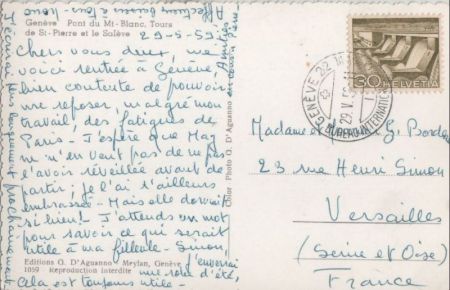 Affectueux baisers à tous
Genève Pont du Mt-Blanc, Tours
de St-Pierre et le Salève
29-5-59
Chers vous deux, me
voici rentrée à Genève,
bien contente de pouvoir
me reposer, malgré mon
travail, des fatigues de
Paris. J'espère que May
ne m'en veut pas de ne pas
l'avoir réveillée avant de
partir; je l'ai d'ailleurs
embrassée - Mais elle dormait
si bien! J'attends un mot
pour savoir ce qui serait
utile à ma filleule. Sinon,
j'enverrai
une robe d'été,
Cela est toujours utile -
longuement prochainement
Editions O. D'Aguanno Meylan, Genève
1059 Reproduction interdite
Color Photo G. D'Aguanno
30 HELVETIA
GENÈVE 22
29.V.59
Madame et G.
23 rue Henri Simon
Versailles
(Seine et Oise)
France